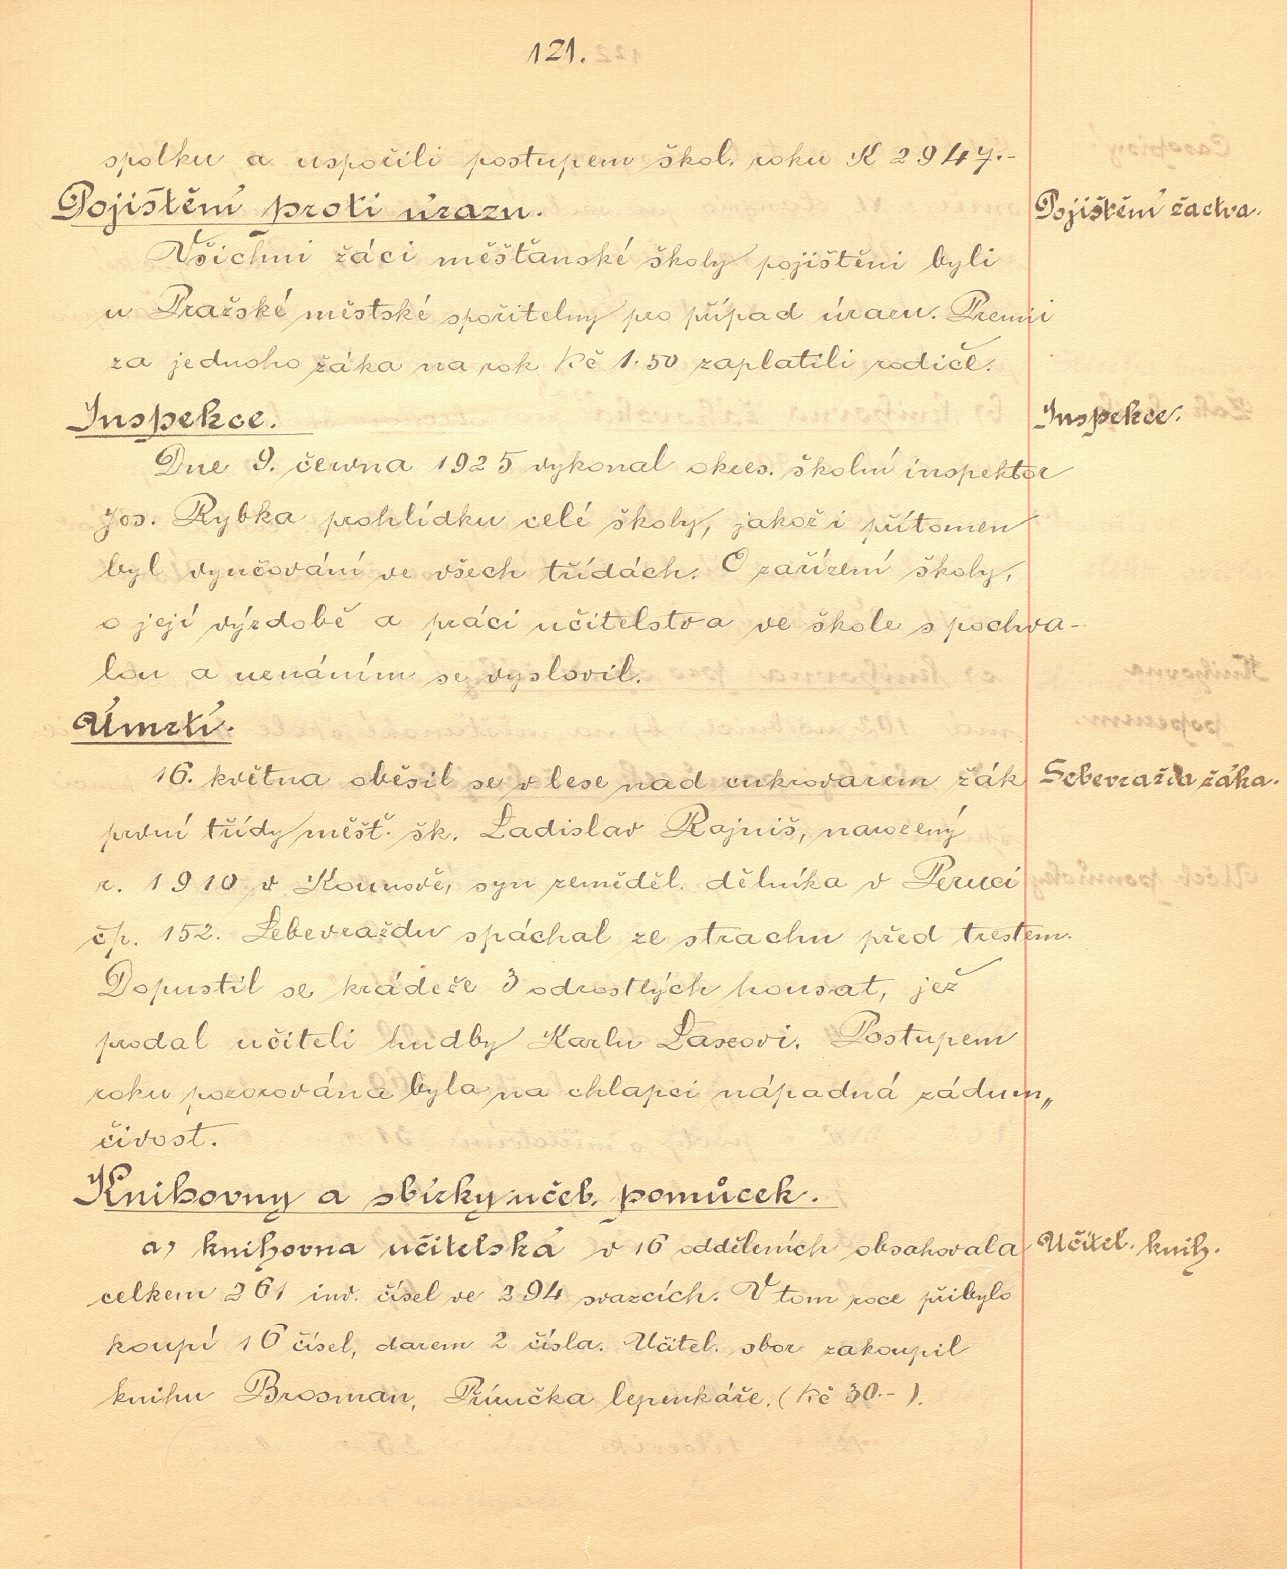 121.
spolku a uspořili postupem škol. roku K 2947.-
Pojištění proti úrazu.
Pojištění žactva.
Všichni žáci měšťanské školy pojištěni byli
u Pražské městské spořitelny pro případ úrazu. Premii
za jednoho žáka na rok Kč 1.50 zaplatili rodiče.
Inspekce.
Inspekce.
Dne 9. června 1925 vykonal okres. školní inspektor
Jos. Rybka prohlídku celé školy, jakož i přítomen
byl vyučování ve všech třídách. O zařízení školy,
o její výzdobě a práci učitelstva ve škole s pochva-
lou a uznáním se vyslovil.
Úmrtí.
16. května oběsil se v lese nad cukrovarem žák
Sebevražda žáka.
první třídy měšť. šk. Ladislav Rajniš, narozený
r. 1910 v Kounově, syn zeměděl. dělníka v Peruci
čp. 152. Sebevraždu spáchal ze strachu před trestem.
Dopustil se krádeže 3 odrostlých housat, jež
prodal učiteli hudby Karlu Laxovi. Postupem
roku pozorována byla na chlapci nápadná zádum„
čivost.
Knihovny a sbírky učeb. pomůcek.
a) knihovna učitelská v 16 odděleních obsahovala
Učitel. knih.
celkem 261 inv. čísel ve 394 svazcích. V tom roce přibylo
koupí 16 čísel, darem 2 čísla. Učitel. sbor zakoupil
knihu Brosman, Příručka lepenkáře. (Kč 30.-).